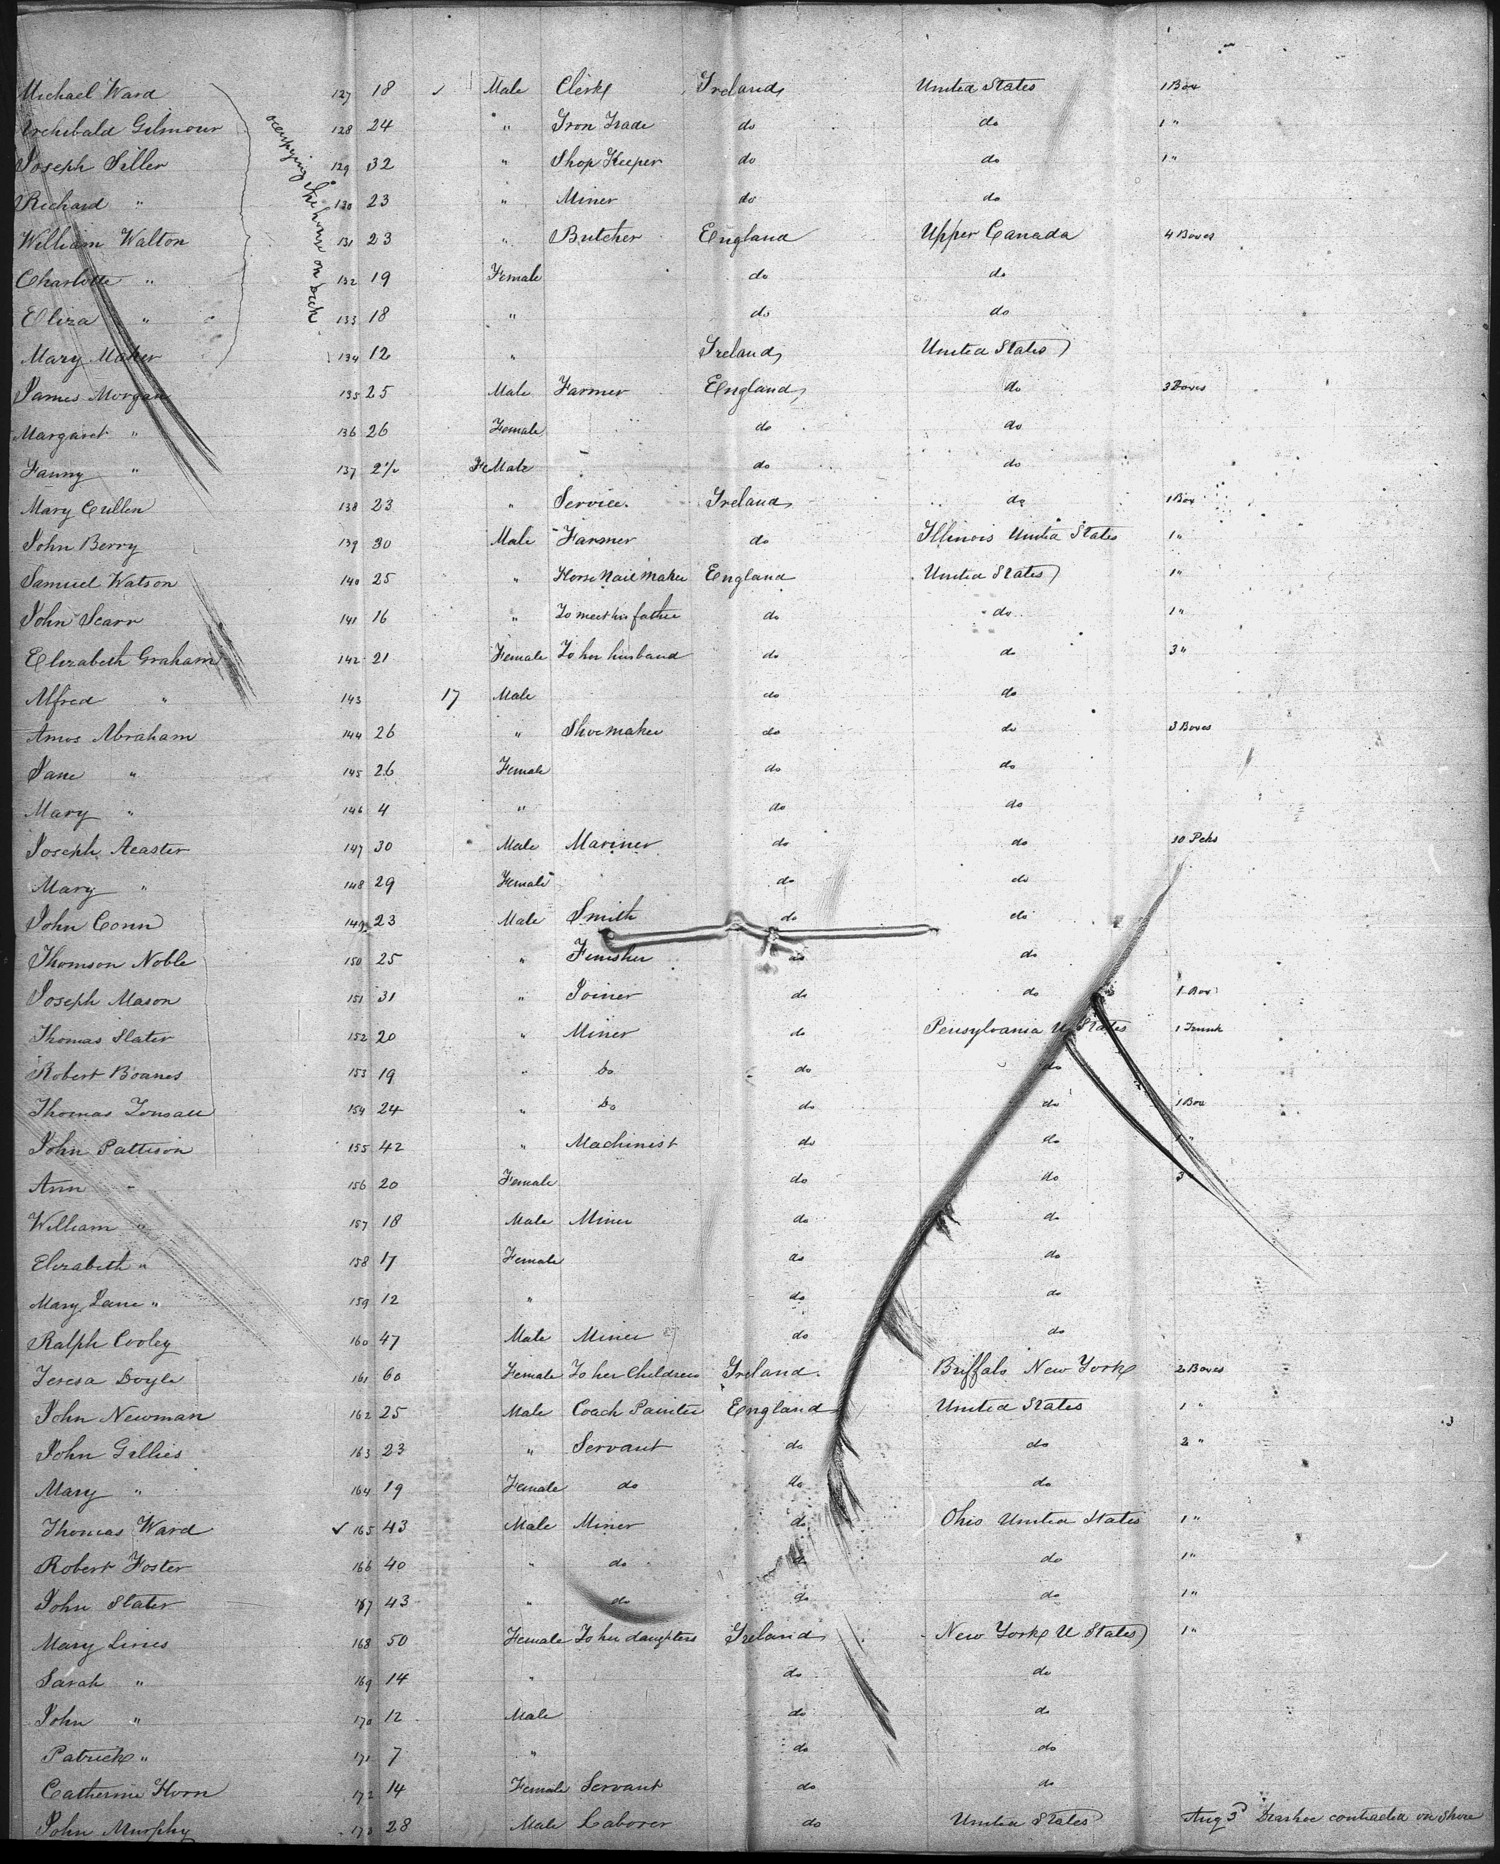 Michael Ward 127 18 Male Clerk Ireland United States 1 Box
Archibald Gilmour 128 24 " Iron Trade do do 1 "
Joseph Siller 129 32 " Shop Keeper do do 1 "
Richard " 130 23 " Miner do do
occupying the house on deck
William Walton 131 23 " Butcher England Upper Canada 4 Boxes
Charlotte " 132 19 Female do do
Eliza " 133 18 " do do
Mary Maher 134 12 " Ireland United States
James Morgan 135 25 Male Farmer England do 3 Boxes
Margaret " 136 26 Female do do
Fanny " 137 2 FeMale do do
Mary Cullen 138 23 " Service Ireland do 1 Box
John Berry 139 30 Male Farmer do Illinois United States 1 "
Samuel Watson 140 25 " Horse Nail Maker England United States 1 "
John Scarr 141 16 " To meet his father do do 1 "
Elizabeth Graham 142 21 Female To her husband do do 3 "
Alfred " 143 17 Male do do
Amos Abraham 144 26 " Shoemaker do do 3 Boxes
Jane " 145 26 Female do do
Mary " 146 4 " do do
Joseph Acaster 147 30 Male Mariner do do 10 Pcks
Mary " 148 29 Female do do
John Conn 149 23 Male Smith do do
Thomson Noble 150 25 " Finisher do do
Joseph Mason 151 31 " Joiner do do 1 Box
Thomas Slater 152 20 " Miner do Pensylvania U States 1 Trunk
Robert Boanes 153 19 " Do do do
Thomas 154 24 " Do do do 1 Box
John Pattison 155 42 " Machinist do do 1 "
Ann " 156 20 Female do do 3
William " 157 18 Male Miner do do
Elizabeth " 158 17 Female do do
Mary Jane " 159 12 " do do
Ralph Cooley 160 47 Male Miner do do
Teresa Doyle 161 60 Female To her Children Ireland Buffalo New York 2 Boxes
John Newman 162 25 Male Coach Painter England United States 1 "
John Gillies 163 23 " Servant do do 2 "
Mary " 164 19 Female do do do
Thomas Ward 165 43 Male Miner do Ohio United States 1 "
Robert Foster 166 40 " do do do 1 "
John Slater 167 43 " do do do 1 "
Mary Lines 168 50 Female To her daughters Ireland New York U States 1 "
Sarah " 169 14 " do do
John " 170 12 Male do do
Patrick " 171 7 " do do
Catherine Horn 172 14 Female Servant do do
John Murphy 173 28 Male Laborer do United States Aug 3 contracted on Shore